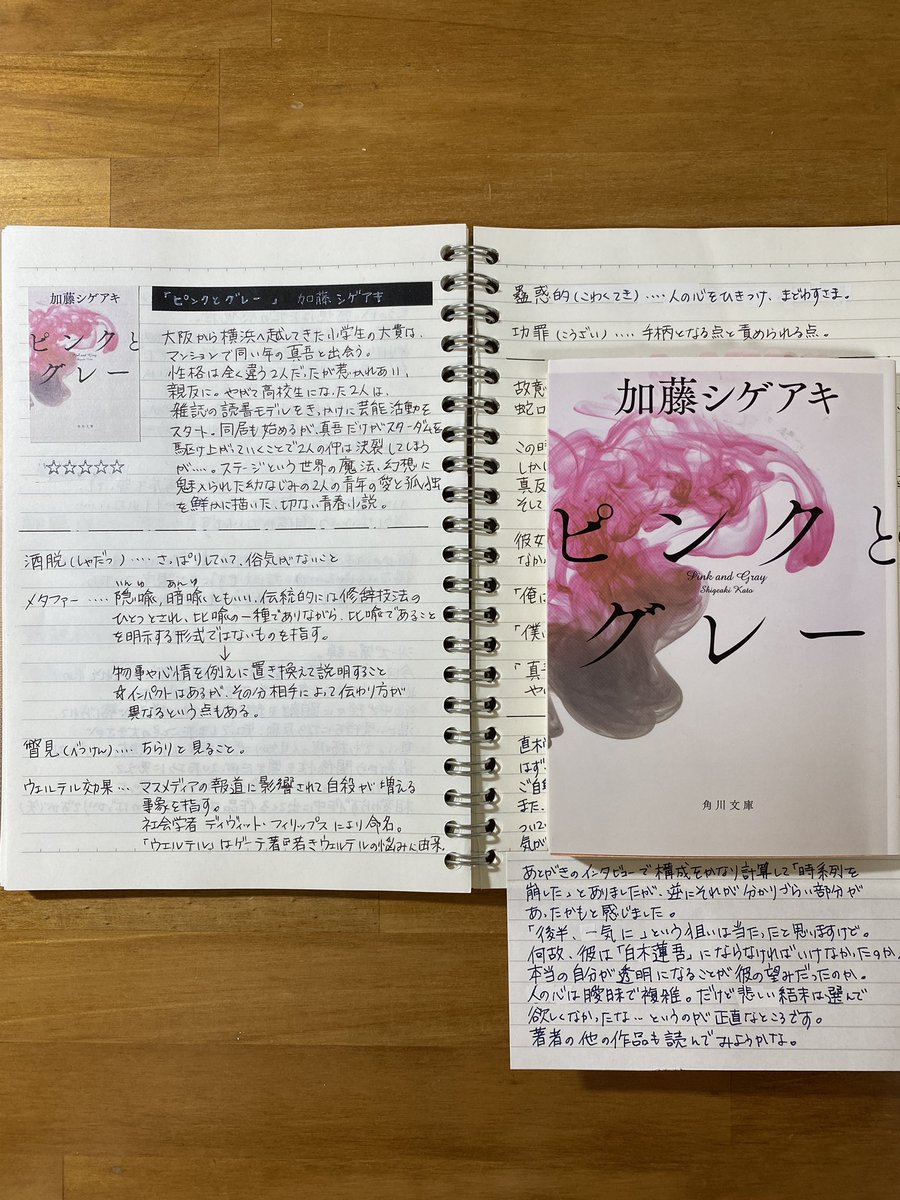 加藤シゲアキ
ピンクと
グレー
Pink and Gray
角川文庫
☆☆☆☆☆
「ピンクとグレー」 加藤シゲアキ
大阪から横浜へ越してきた小学生の大貴は、
マンションで同い年の真吾と出会う。
性格は全く違う2人だったが惹かれあい、
親友に。やがて高校生になった2人は、
雑誌の読書モデルをきっかけに芸能活動を
スタート。同居も始めるが、真吾だけがスターダムを
駆け上がっていくことで2人の仲は決裂してしまう
が‥‥。ステージという世界の魔法、幻想に
魅入られた幼なじみの2人の青年の愛と孤独
を鮮かに描いた、切ない青春小説。
洒脱(しゃだつ)‥‥さっぱりしていて、俗気がないこと
メタファー‥‥隠喩(いんゆ)、暗喩(あんゆ)ともいい、伝統的には修辞技法の
ひとつとされ、比喩の一種でありながら、比喩であること
を明示する形式ではないものを指す。
↓
物事や心情を例えに置き換えて説明すること
☆インパクトはあるが、その分相手によって伝わり方が
異なるという点もある。
瞥見(べっけん)‥‥ちらりと見ること。
ウェルテル効果‥‥マスメディアの報道に影響されて自殺が増える
事象を指す。
社会学者ディヴィット・フィリップスにより命名。
「ウエルテル」はゲーテ著『若きウェルテルの悩み』に由来。
蠱惑的(こわくてき)‥‥人の心をひきつけ、まどわすさま。
功罪(こうざい)‥‥手柄となる点と責められる点。
故意
蛇口
この
しかし
真反
そして
彼女
なか
「俺は
「僕
「真
や
直木
はず
ご自
また、
つい
気が
加藤シゲアキ
ピンクと
Pink and Gray
Shigeaki Kato
グレー
角川文庫
あとがきのインタビューで構成をかなり計算して「時系列を
崩した」とありましたが、逆にそれが分かりづらい部分が
あったかもと感じました。
「後半、一気に」という狙いは当たったと思いますけど。
何故、彼は「白木蓮吾」にならなければいけなかったのか
本当の自分が透明になることが彼の望みだったのか。
人の心は曖昧で複雑。だけど悲しい結末は選んで
欲しくなかったな‥というのが正直なところです。
著者の他の作品も読んでみようかな。